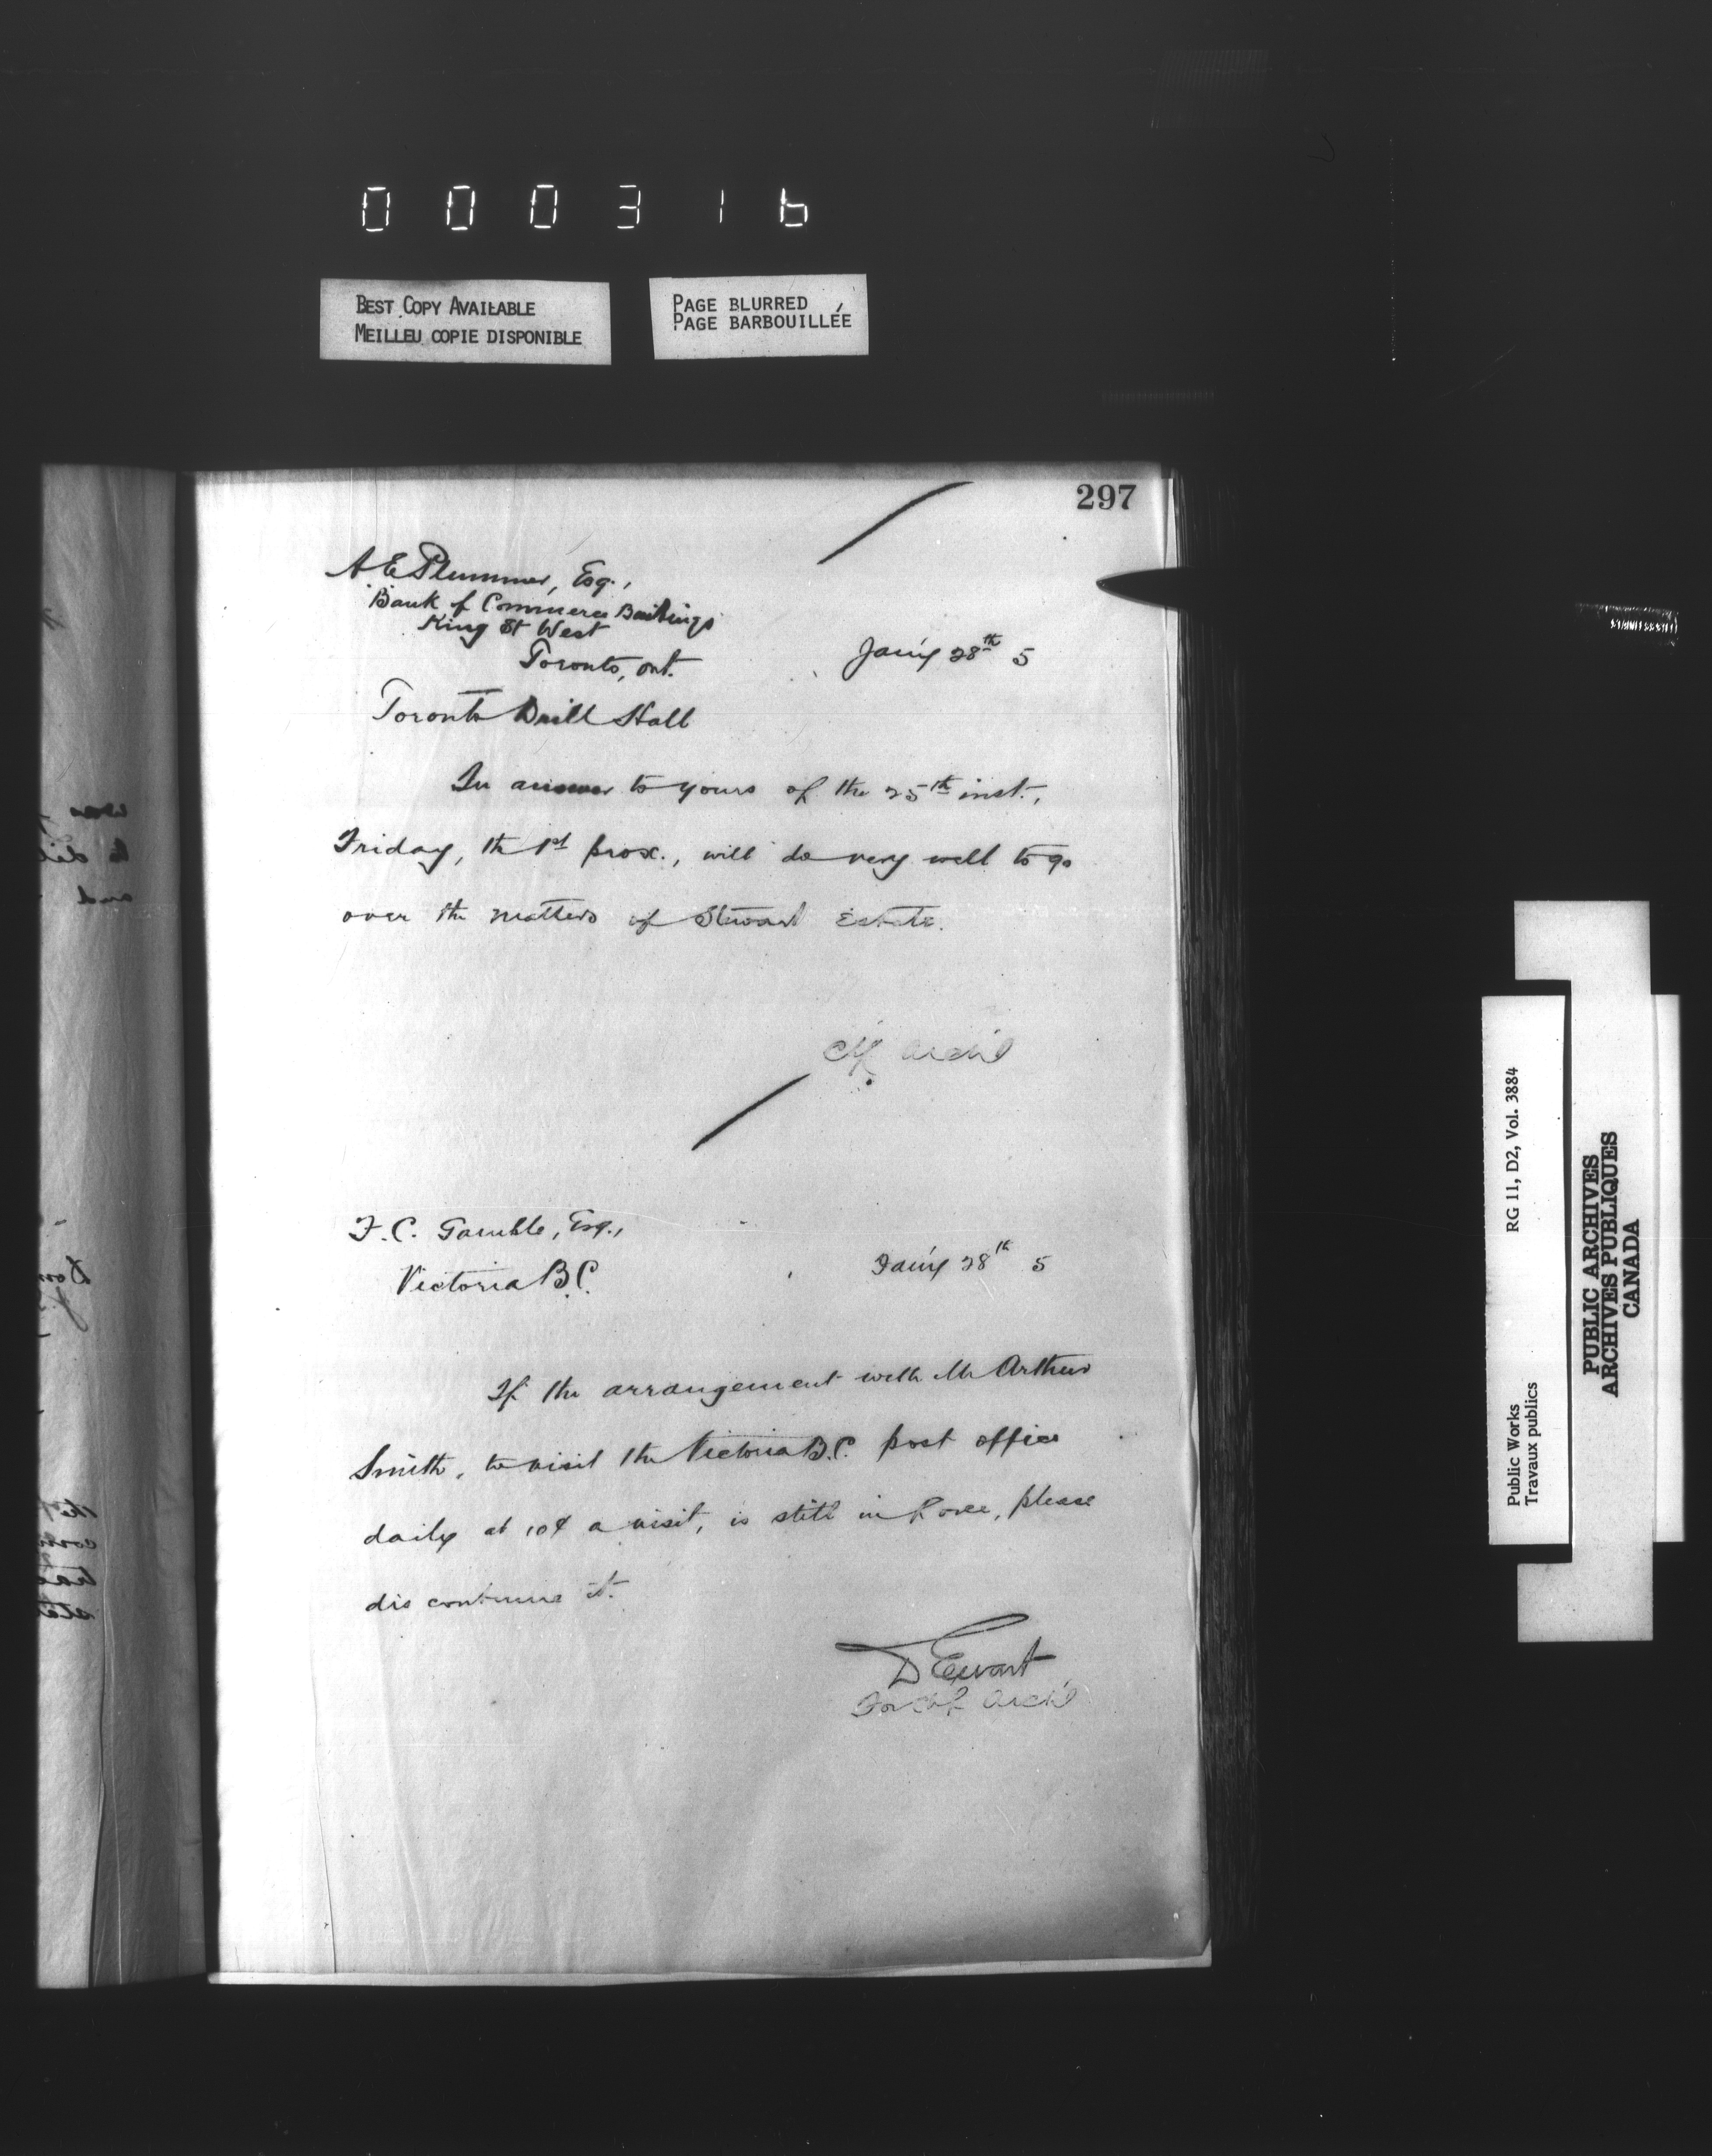 000316
BEST COPY AVAILABLE
MEILLEU COPIE DISPONIBLE
PAGE BLURRED
PAGE BARBOUILLÉE
297
A E Plummer, Esq.,
Bank of Commerce Buildings
King St West
Toronto, Ont.
Jan'y 28th 5
Toronto Drill Hall
In answer to yours of the 25th inst.,
Friday, the 1st prox., will do very well to go
over the matters of Stewart Estate.
Ch Arch't
F. C. Gamble, Esq.,
Victoria B.C.
Jan'y 28th 5
If the arrangement with Mr Arthur
Smith, to visit the Victoria B.C. post office
daily at 10¢ a visit, is still in force, please
discontinue it.
D Ewart
For Ch Arch't
RG 11, D2, Vol. 3884
Public Works
Travaux publics
PUBLIC ARCHIVES
ARCHIVES PUBLIQUES
CANADA